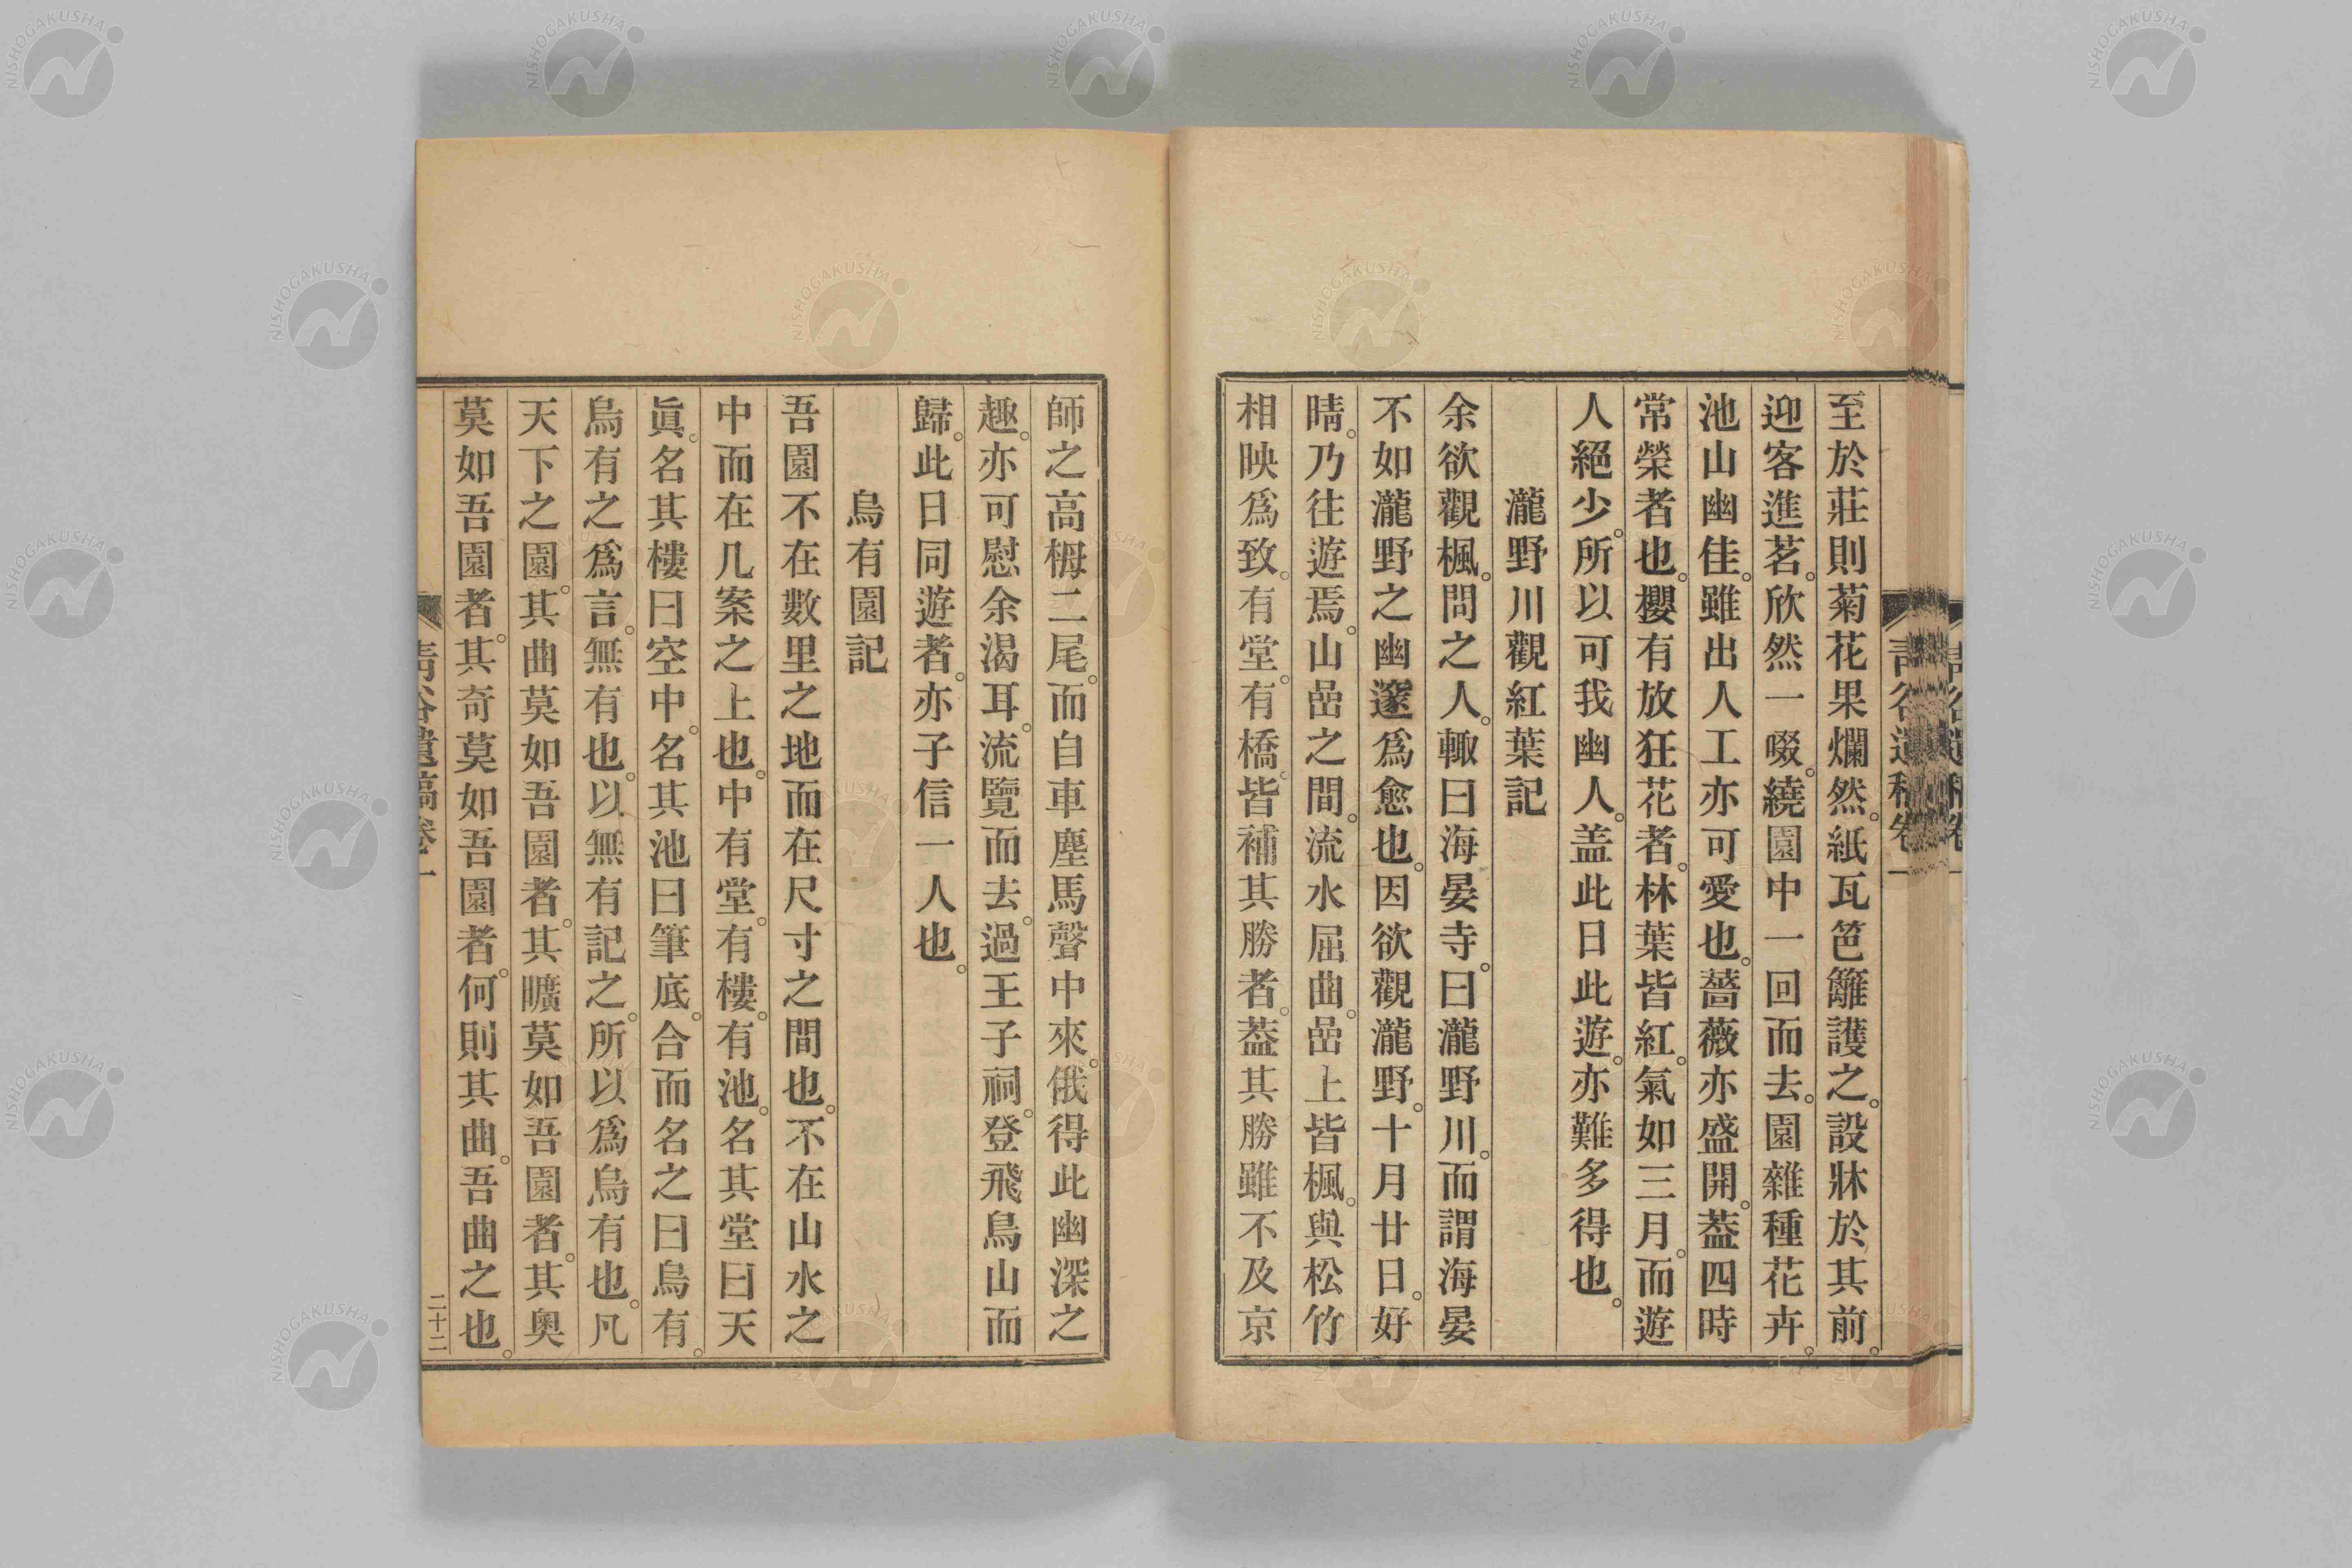 至於莊則菊花果爛然。紙瓦笆籬護之。設牀於其前。
迎客進茗。欣然一啜。繞園中一回而去。園雜種花卉。
池山幽佳。雖出人工亦可愛也。薔薇亦盛開。葢四時
常榮者也。櫻有放狂花者。林葉皆紅。氣如三月。而遊
人絕少。所以可我幽人。盖此日此遊。亦難多得也。
瀧野川觀紅葉記
余欲觀楓。問之人。輙曰海晏寺。曰瀧野川。而謂海晏
不如瀧野之幽邃爲愈也。因欲觀瀧野。十月廿日。好
晴。乃往遊焉。山嵒之間。流水屈曲。嵒上皆楓。與松竹
相映爲致。有堂。有橋。皆補其勝者。葢其勝雖不及京
師之高栂二尾。而自車塵馬聲中來。俄得此幽深之
趣。亦可慰余渴耳。流覽而去。過王子祠。登飛鳥山而
歸。此日同遊者。亦子信一人也。
烏有園記
吾園不在數里之地而在尺寸之間也。不在山水之
中而在几案之上也。中有堂。有樓。有池。名其堂曰天
眞。名其樓曰空中。名其池曰筆底。合而名之曰烏有。
烏有之爲言。無有也。以無有記之。所以爲烏有也。凡
天下之園。其曲莫如吾園者。其曠莫如吾園者。其奧
莫如吾園者。其奇莫如吾園者。何則其曲。吾曲之也。
二十二
NISHOGAKUSHA